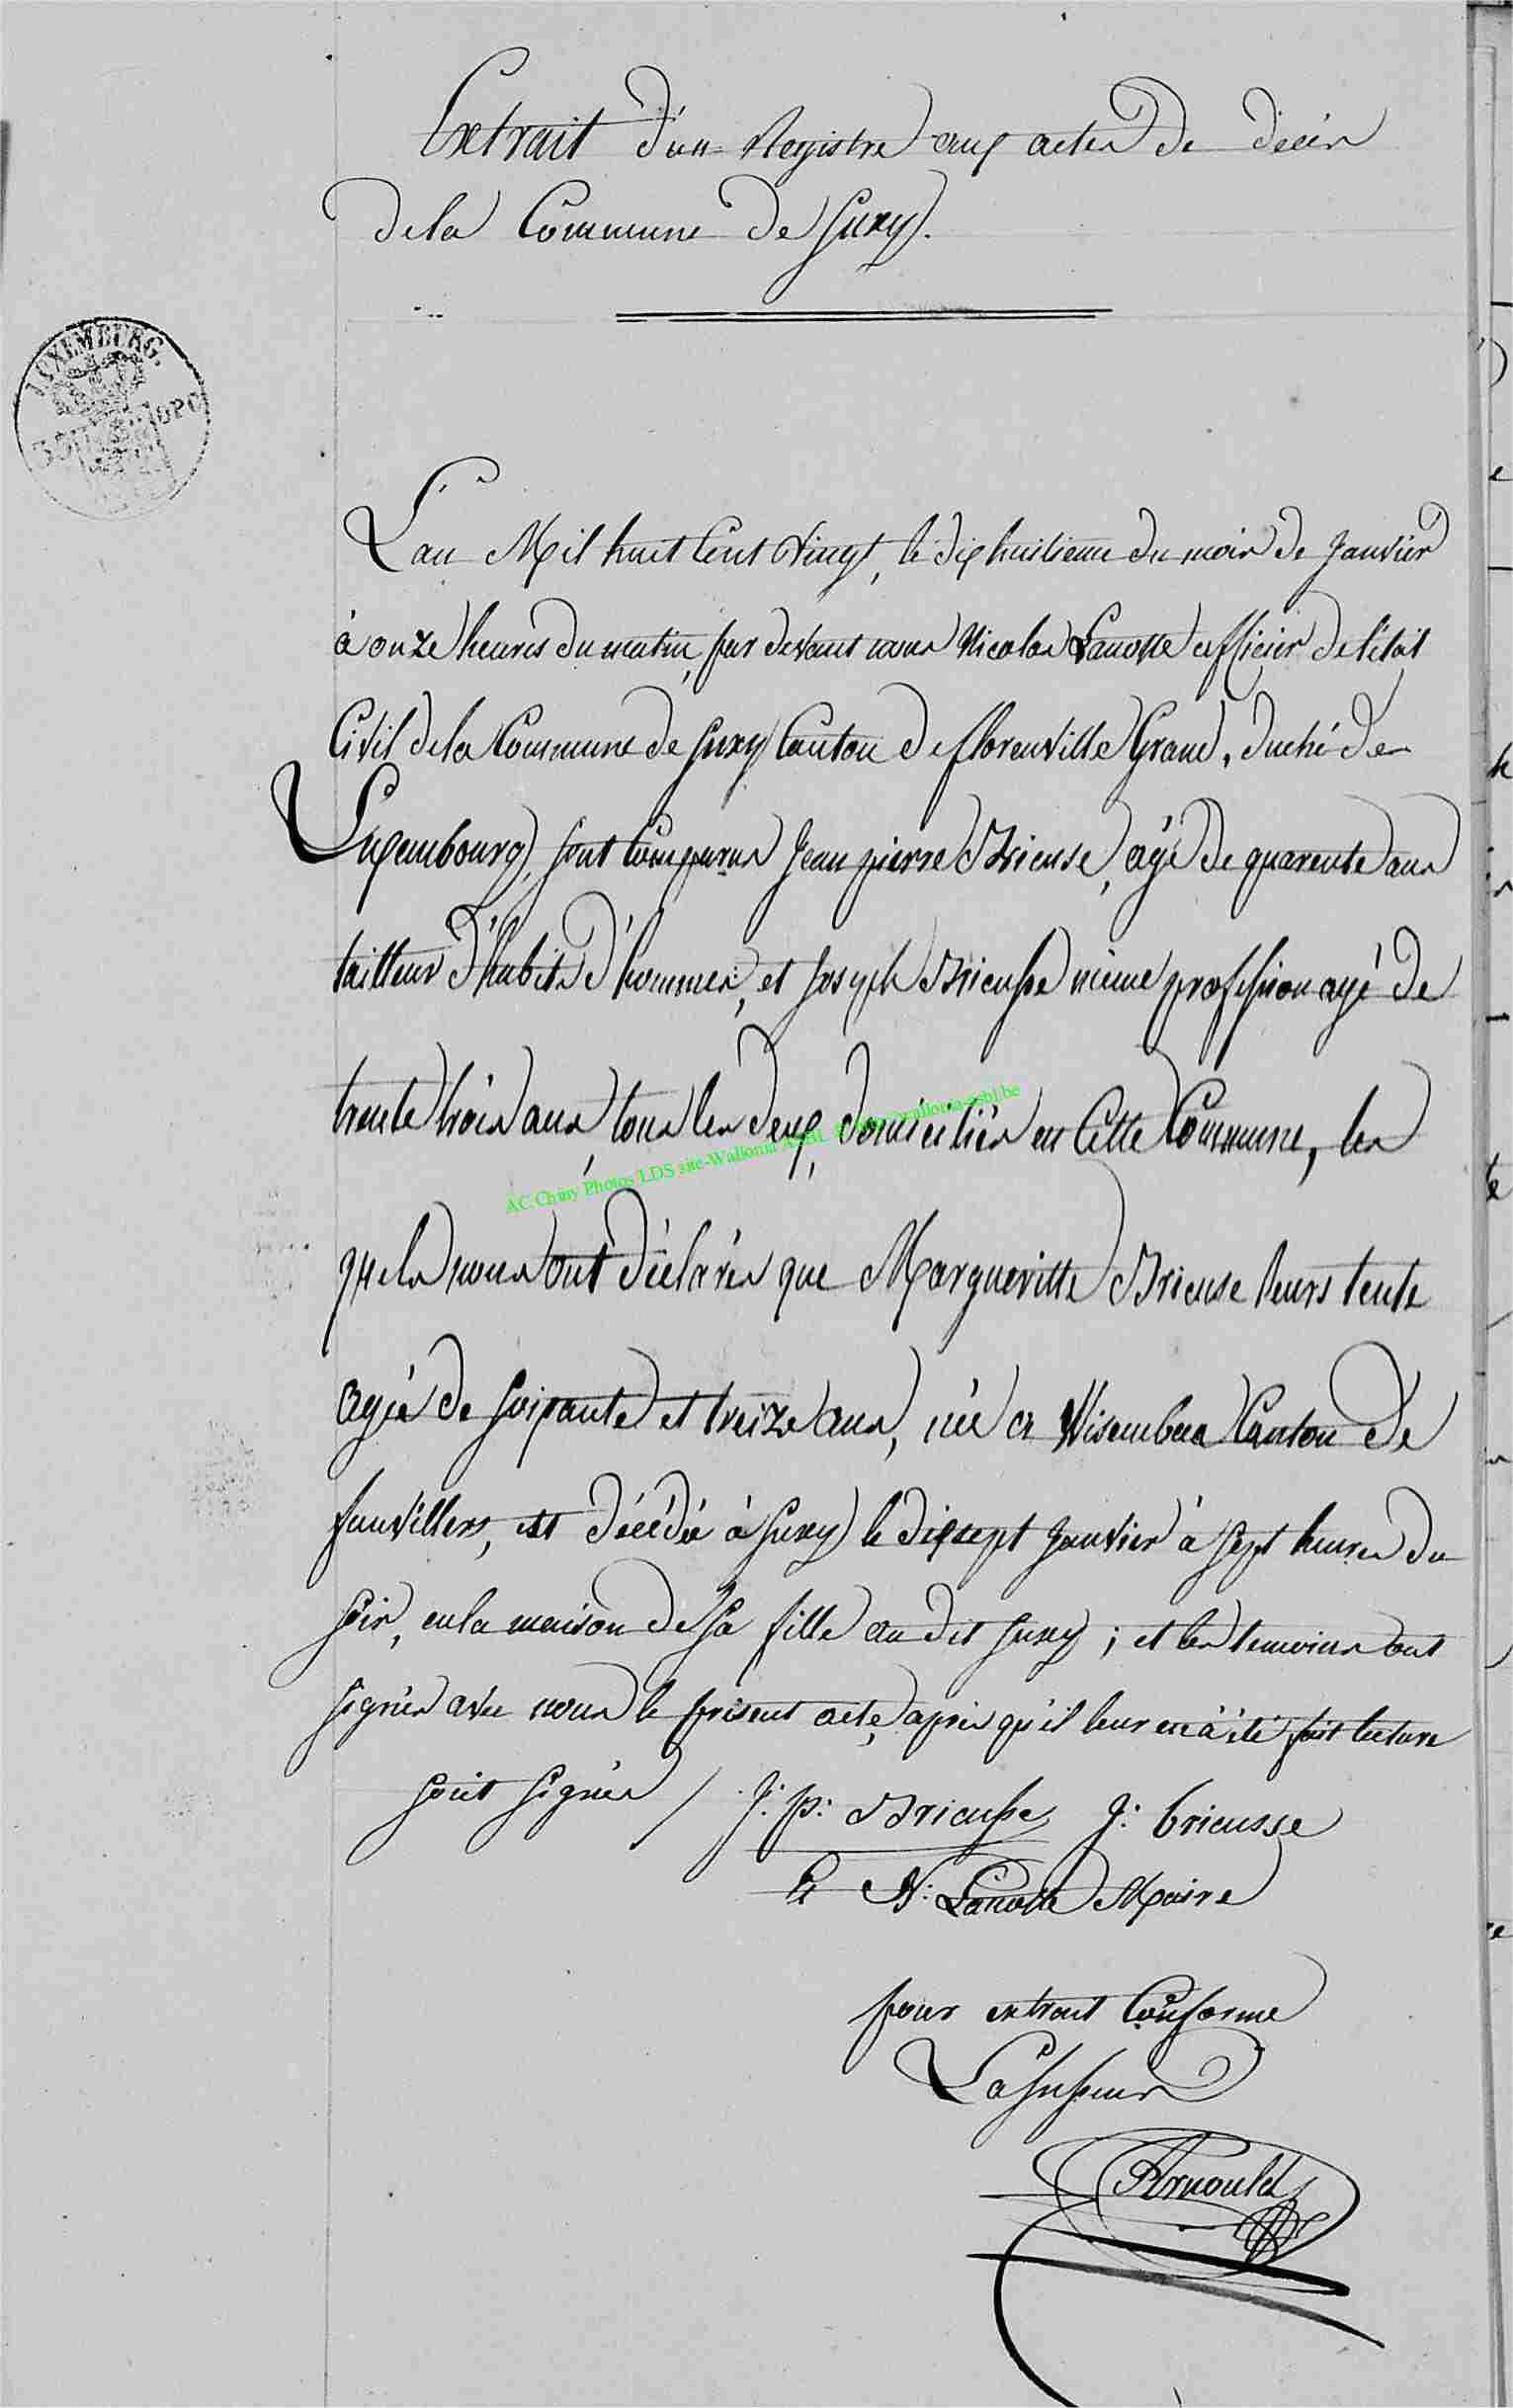 Extrait d'un Registre aux actes de décès
de la Commune de Suxy.
LUXEMBURG.
L'an Mil huit Cent Vingt, le dix huitieme du mois de Janvier
à onze heures du matin, par devant nous Nicolas Lanotte officier de l'état
Civil de la Commune de Suxy Canton de florenville Grand, duché de
Luxembourg, sont Comparus Jean pierre Brieuse, agé de quarente ans
tailleur d'habits d'hommes, et Joseph Brieusse même profession agé de
trente trois ans, tous les deux, domiciliés en Cette Commune, les
quels nous ont déclarés que Margueritte Brieuse leurs tente
agée de soixante et treize ans, née a Wisembac Canton de
fauvillers, est décédée à Suxy le dixsept Janvier à sept heures du
soir, en la maison de sa fille au dit Suxy ; et les temoins ont
signés avec nous le present acte, apres qu'il leur en à été fait lecture
sont signés / J: p: Brieusse J: brieusse
& N: Lanotte Maire
pour extrait Conforme
L'assesseur
Arnould
AC Chiny Photos LDS site-Wallonia ASBL @ http://wallonia-asbl.be